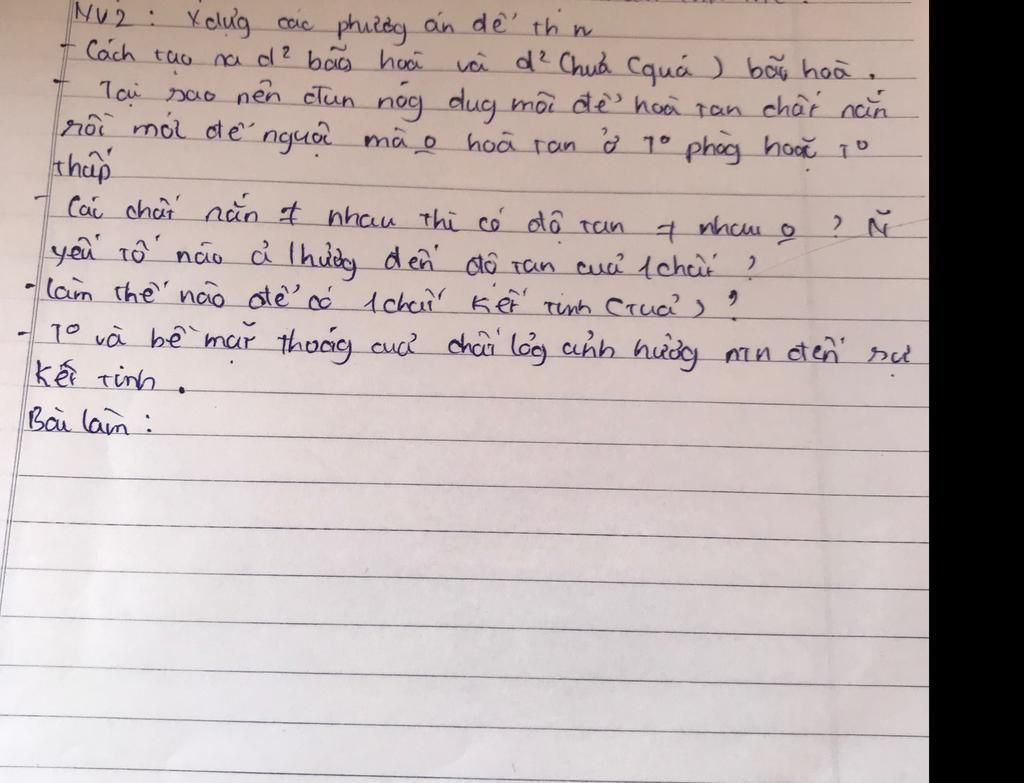 NV2 : Xdựg các phươg án để th n
- Cách tạo ra d² bão hoà và d² Chưa (quá) bão hoà .
- Tại sao nên đun nóg dug môi để hoà tan chất rắn
rồi mới để nguội mà o hoà tan ở T° phòg hoặc T°
thấp
- Các chất rắn ≠ nhau thì có độ tan ≠ nhau o ? Ñ
yếu tố nào ả hưởg đến độ tan của 1chất ?
- làm thế nào để có 1chất kết tinh (Tủa) ?
- T° và bề mặt thoág của chất lỏg ảnh hưởg ntn đến sự
kết tinh .
Bài làm :